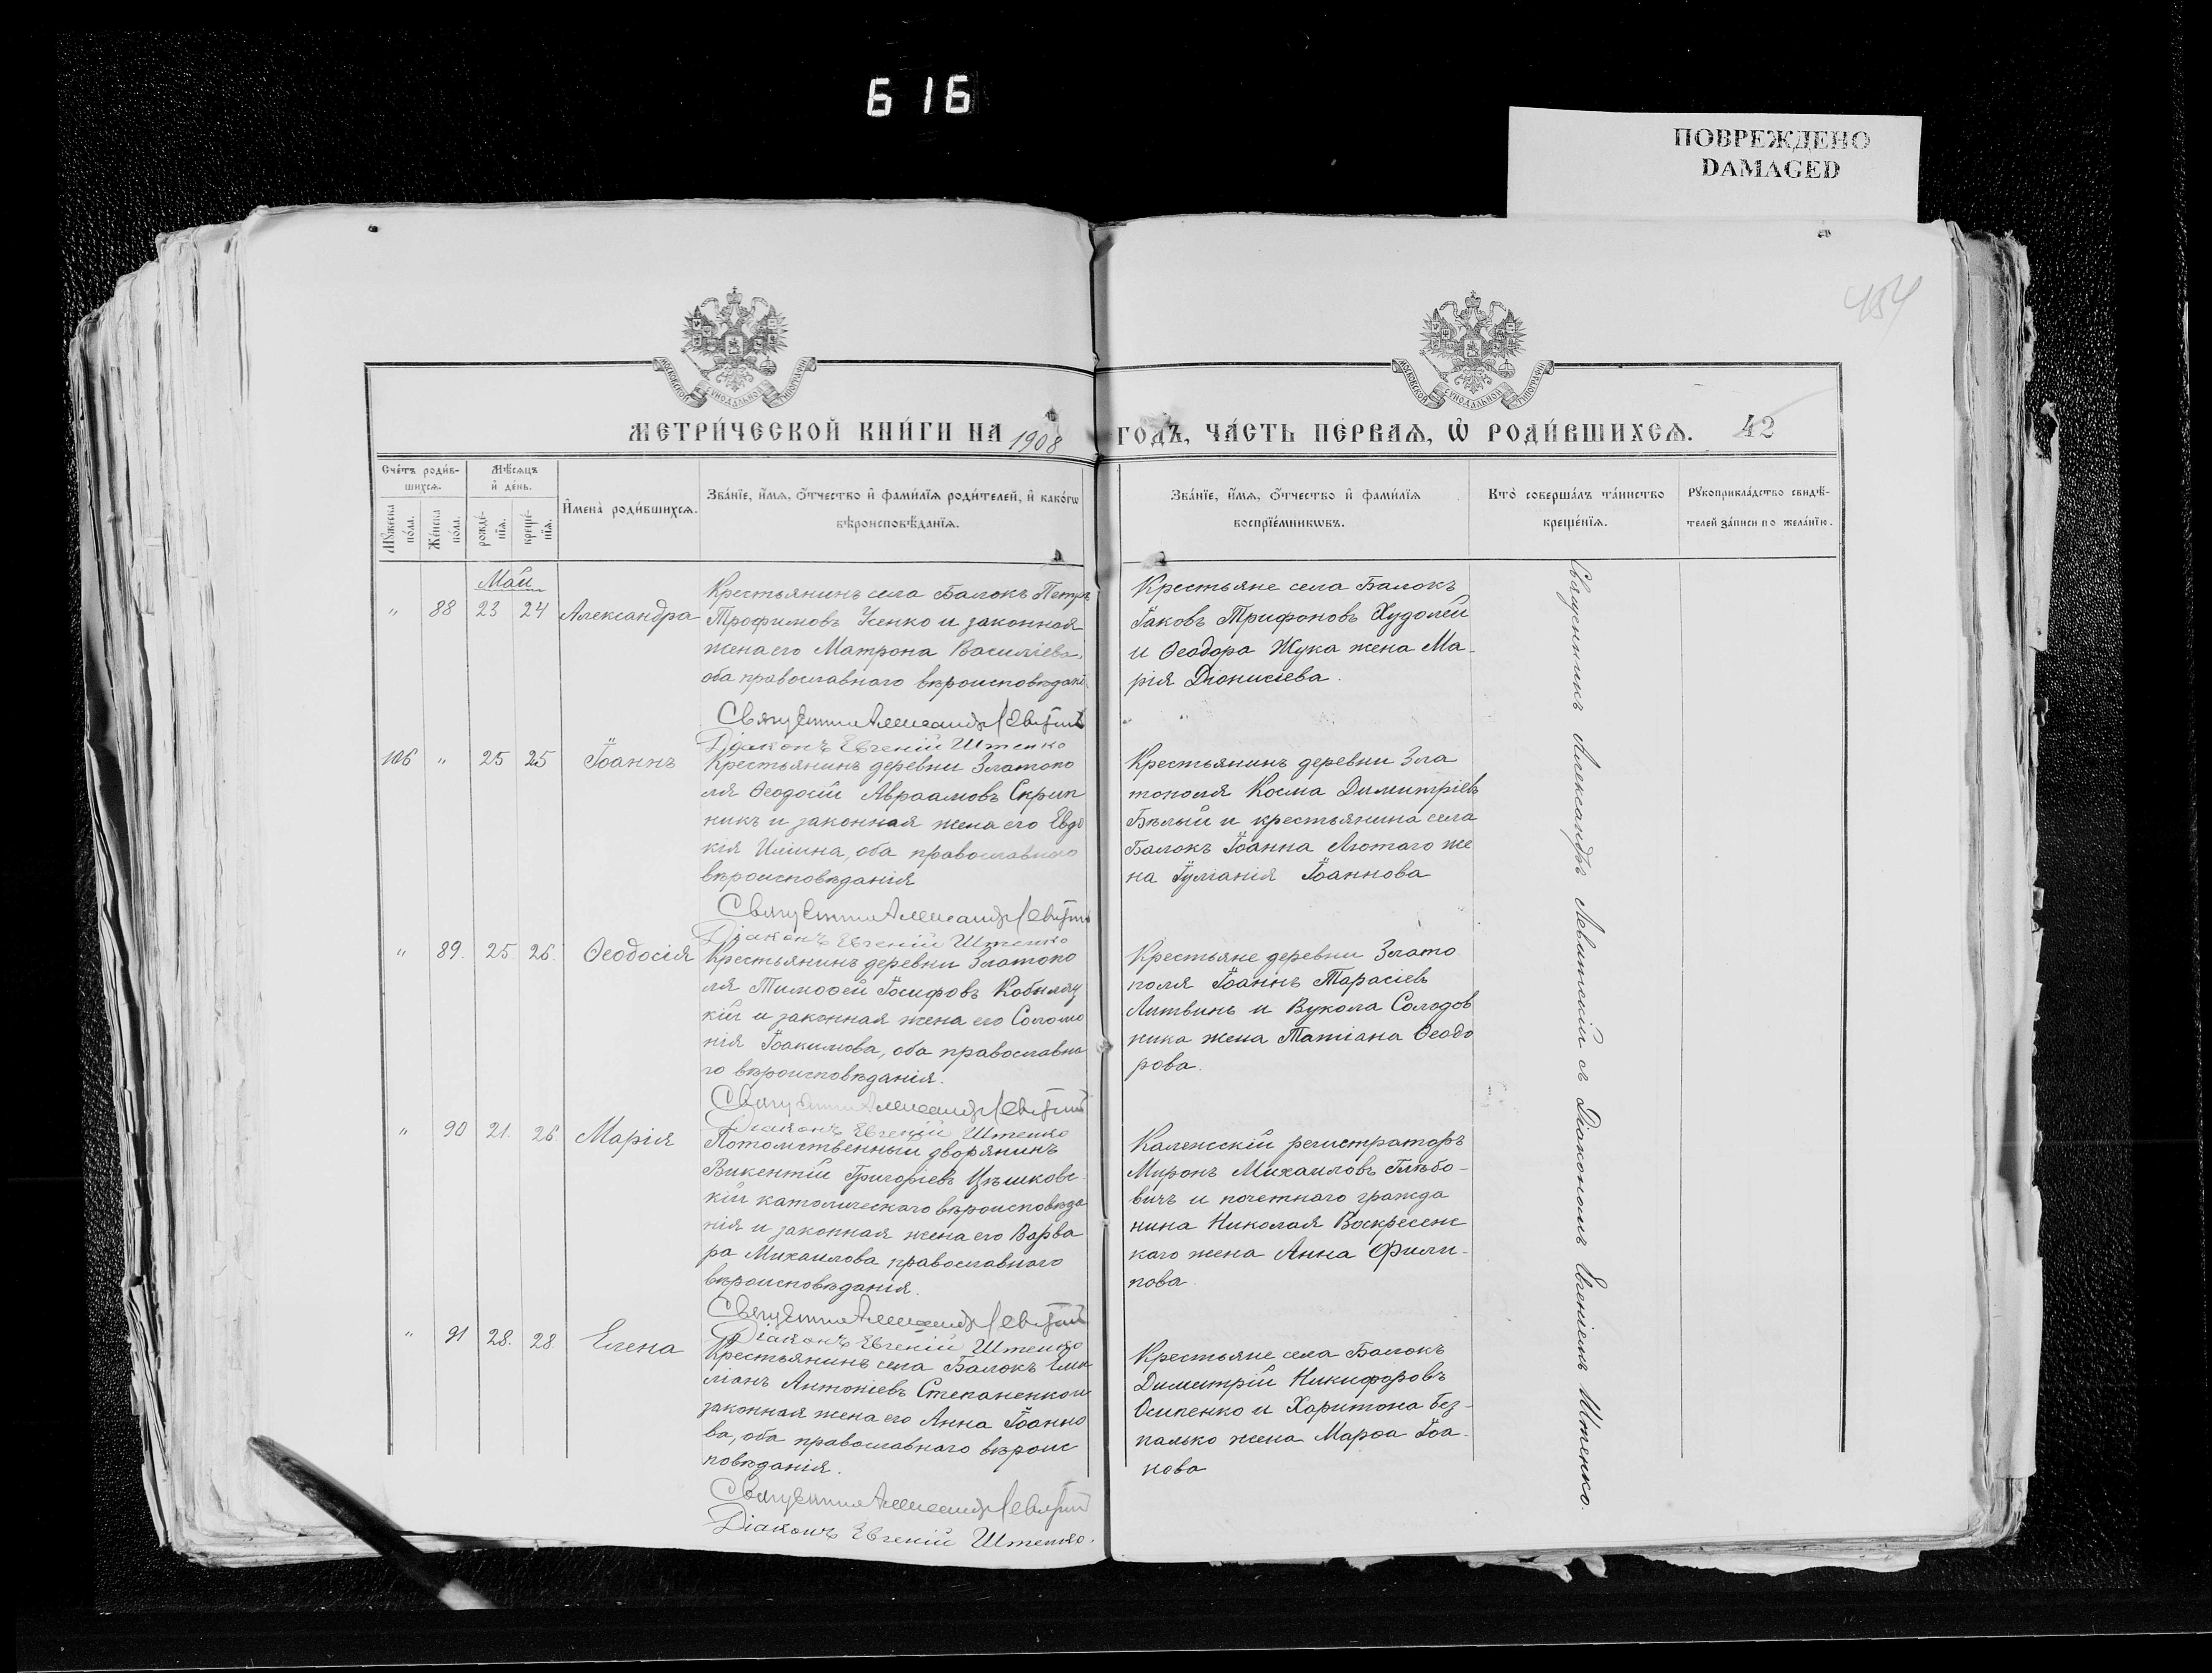 616
ПОВРЕЖДЕНО
DAMAGED
454
МОСКОВСКОЙ СѴНОДАЛЬНОЙ ТИПОГРАФІИ
МОСКОВСКОЙ СѴНОДАЛЬНОЙ ТИПОГРАФІИ
МЕТРИ́ЧЕСКОЙ КНИ́ГИ НА 1908 ГОДЪ, ЧА́СТЬ ПЕ́РВАѦ, Ѡ РОДИ́ВШИХСѦ. 42
Сче́тъ роди́в-
шихсѧ.
Мꙋ́жеска по́ла.
Же́нска по́ла.
Мѣ́сѧцъ
и де́нь.
рожде́-нїѧ.
креще́-нїѧ.
И҆мена̀ роди́вшихсѧ.
Зва́нїе, и҆́мѧ, ѻ҆́тчество и҆ фами́лїѧ роди́телей, и҆ како́гѡ
вѣроисповѣ́данїѧ.
Зва́нїе, и҆́мѧ, ѻ҆́тчество и҆ фами́лїѧ
воспрїе́мникѡвъ.
Кто̀ соверша́лъ та́инство
креще́нїѧ.
Рꙋкоприкла́дство свидѣ́-
телей за́писи по жела́нїю.
Май
" 88 23 24 Александра
Крестьянинъ села Балокъ Петръ
Трофимовъ Усенко и законная
жена его Матрона Василіева,
оба православнаго вѣроисповѣдані
Священникъ Александръ Левитскій
Діаконъ Евгеній Штенко
Крестьяне села Балокъ
Іаковъ Трифоновъ Худолей
и Ѳеодора Жука жена Ма-
рія Діонисіева.
106 " 25 25 Іоаннъ
Крестьянинъ деревни Златопо
ля Ѳеодосій Авраамовъ Скрип
никъ и законная жена его Евдо
кія Иліина, оба православнаго
вѣроисповѣданія
Священникъ Александръ Левитскій
Діаконъ Евгеній Штенко
Крестьянинъ деревни Зла
тополя Косма Димитріевъ
Бѣлый и крестьянина села
Балокъ Іоанна Лютаго же
на Іуліанія Іоаннова
" 89. 25. 26. Ѳеодосія
Крестьянинъ деревни Златопо
ля Тимоѳей Іосифовъ Кобыляц
кій и законная жена его Соломо
нія Іоакимова, оба православна
го вѣроисповѣданія.
Священникъ Александръ Левитскій
Діаконъ Евгеній Штенко
Крестьяне деревни Злато
поля Іоаннъ Тарасіевъ
Литвинъ и Вукола Солодов
ника жена Татіана Ѳеодо
рова.
" 90 21. 26. Марія
Потомственный дворянинъ
Викентій Григоріевъ Цѣшковс
кій католическаго вѣроисповѣда
нія и законная жена его Варва
ра Михаилова православнаго
вѣроисповѣданія.
Священникъ Александръ Левитскій
Діаконъ Евгеній Штенко
регистраторъ
Миронъ Михаиловъ Глѣбо-
вичъ и почетнаго гражда
нина Николая Воскресенс
каго жена Анна Фили-
пова.
" 91 28. 28 Елена
Крестьянинъ села Балокъ Еми
ліанъ Антоніевъ Степаненко и
законная жена его Анна Іоанно
ва, оба православнаго вѣроис
повѣданія.
Священникъ Александръ Левитскій
Діаконъ Евгеній Штенко.
Крестьяне села Балокъ
Димитрій Никифоровъ
Осипенко и Харитона Без-
палько жена Марѳа Іоа-
нова
Священникъ Александръ Левитскій съ Діакономъ Евгеніемъ Штенко.